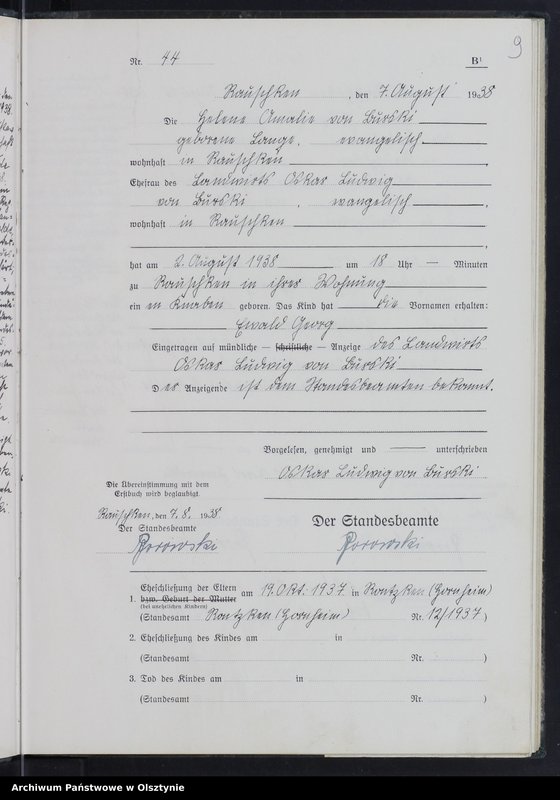 9
Nr. 44 B¹
Rauschken, den 7. August 1938
Die Helene Amalie von Burski
geborene Lange, evangelisch
wohnhaft in Rauschken,
Ehefrau des Landwirts Oskar Ludwig
von Burski, evangelisch,
wohnhaft in Rauschken
,
hat am 2. August 1938 um 18 Uhr — Minuten
zu Rauschken in ihrer Wohnung
ein en Knaben geboren. Das Kind hat die Vornamen erhalten:
Ewald Georg
Eingetragen auf mündliche — schriftliche — Anzeige des Landwirts
Oskar Ludwig von Burski
D er Anzeigende ist dem Standesbeamten bekannt.
Vorgelesen, genehmigt und — unterschrieben
Oskar Ludwig von Burski
Die Übereinstimmung mit dem
Erstbuch wird beglaubigt.
Rauschken, den 7. 8. 1938.
Der Standesbeamte
Der Standesbeamte
Borowski
Borowski
Eheschließung der Eltern
1. bzw. Geburt der Mutter am 19. Okt. 1937 in Rontzken (Hornheim)
(bei unehelichen Kindern)
(Standesamt Rontzken (Hornheim) Nr. 12/1937)
2. Eheschließung des Kindes am in
(Standesamt Nr. )
3. Tod des Kindes am in
(Standesamt Nr. )
Archiwum Państwowe w Olsztynie